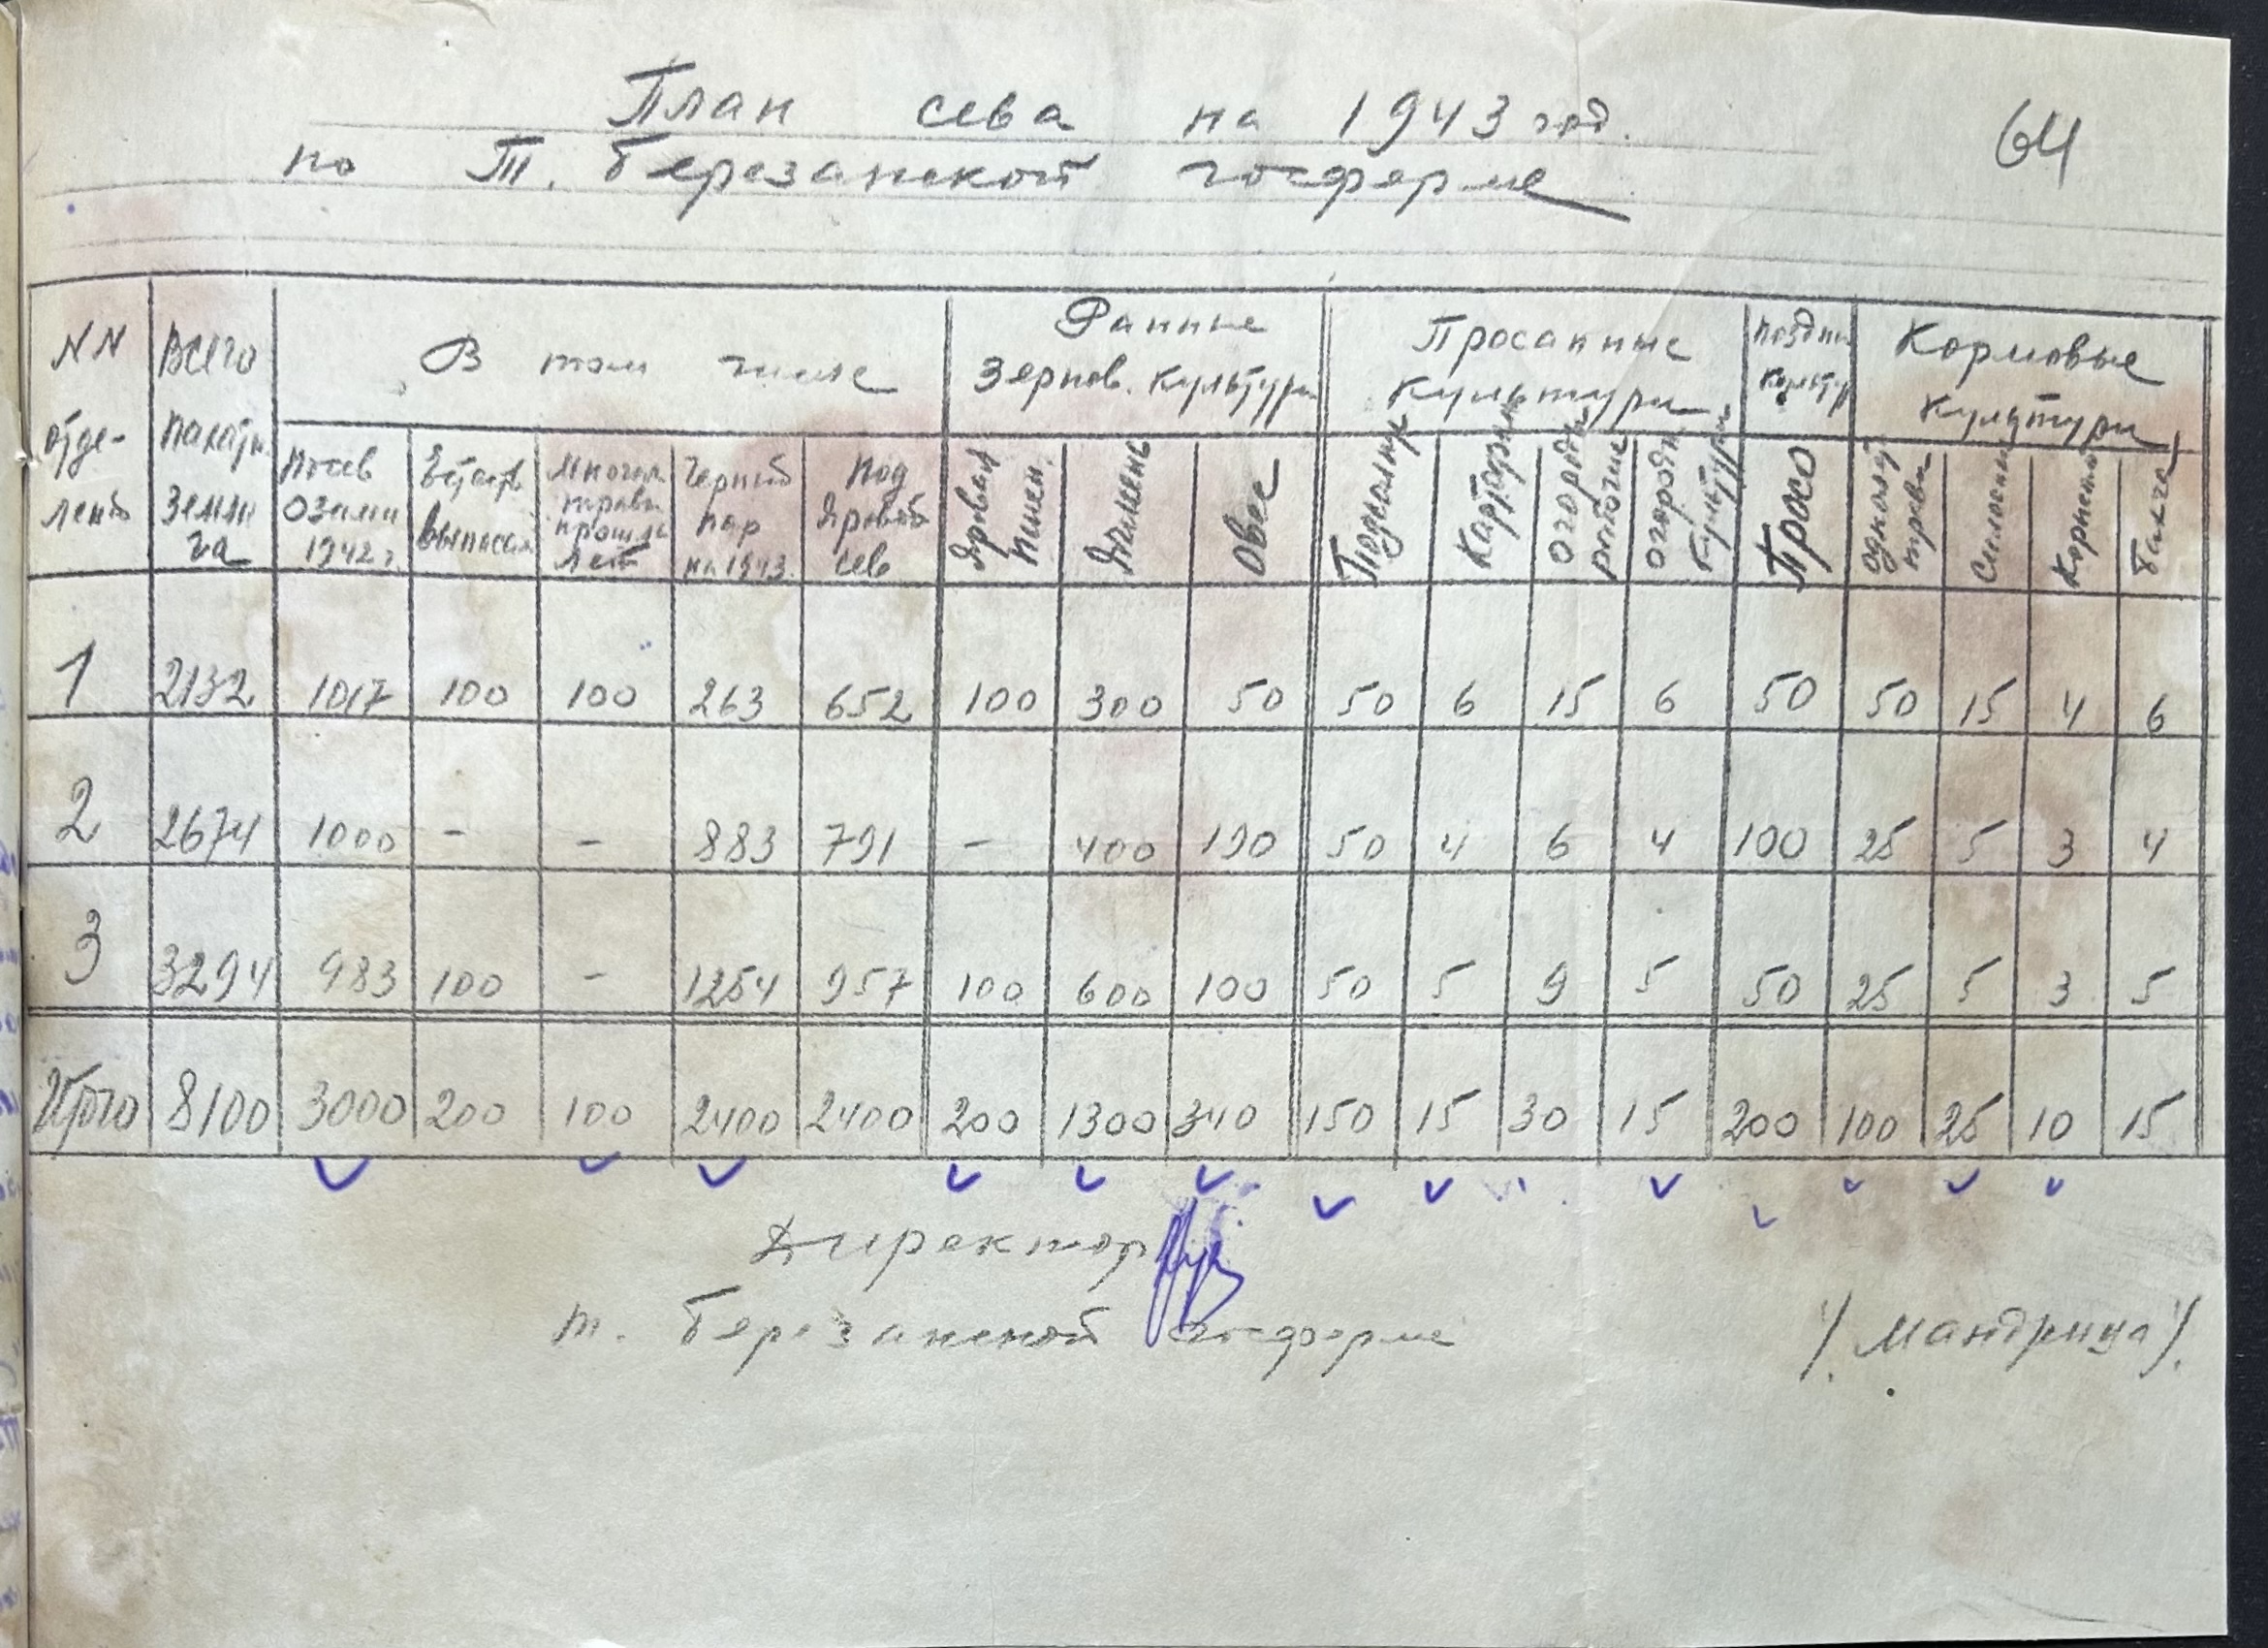 План сева на 1943 год.
по Т. Березанской госферме
64
NN отде- лень | Всего пахатн. земли га | В том числе | Ранние зернов. культуры | Просапные культуры | поздни культур | Кормовые культуры
Посев озими 1942 г. | выпаса | Многол травы прошлы лет | Черный пар на 1943. | Под яровой сев | Яровая пшен. | Ячмень | Овес | Подсолнух | Картофель | огороды рабочие | огородн. культуры | Просо | однолет травы | Силосн | Корнепл | Бахча
1 | 2132 | 1017 | 100 | 100 | 263 | 652 | 100 | 300 | 50 | 50 | 6 | 15 | 6 | 50 | 50 | 15 | 4 | 6
2 | 2674 | 1000 | - | - | 883 | 791 | - | 400 | 190 | 50 | 4 | 6 | 4 | 100 | 25 | 5 | 3 | 4
3 | 3294 | 983 | 100 | - | 1254 | 957 | 100 | 600 | 100 | 50 | 5 | 9 | 5 | 50 | 25 | 5 | 3 | 5
Итого | 8100 | 3000 | 200 | 100 | 2400 | 2400 | 200 | 1300 | 340 | 150 | 15 | 30 | 15 | 200 | 100 | 25 | 10 | 15
Директор
т. Березанской госферме /Мандрица/.